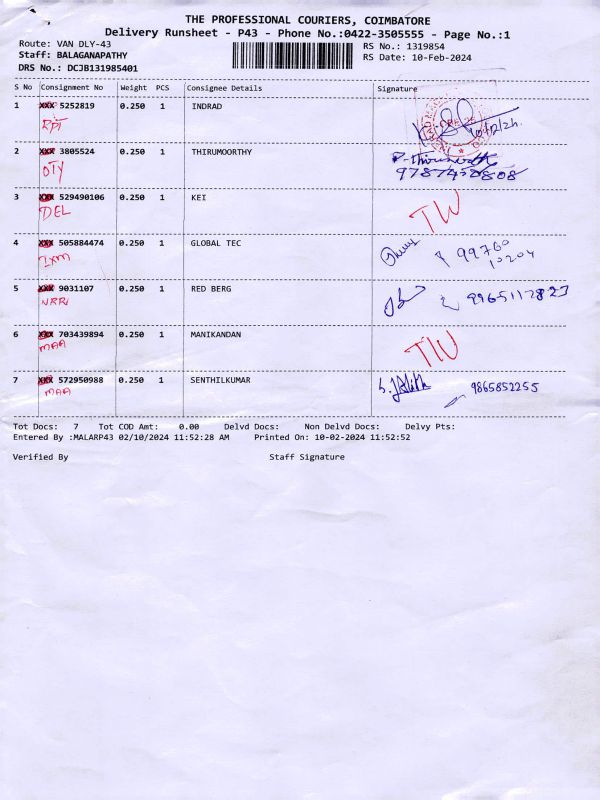 THE PROFESSIONAL COURIERS, COIMBATORE
Delivery Runsheet - P43 - Phone No.:0422-3505555 - Page No.:1
Route: VAN DLY-43
RS No.: 1319854
Staff: BALAGANAPATHY
RS Date: 10-Feb-2024
DRS No.: DCJB131985401
S No Consignment No Weight PCS Consignee Details Signature
1 XXX 5252819 0.250 1 INDRAD
RPT
10/2/24
2 XXX 3805524 0.250 1 THIRUMOORTHY
OTY
9787450808
3 XXX 529490106 0.250 1 KEI
DEL
4 XXX 505884474 0.250 1 GLOBAL TEC
IXM
99760
10204
5 XXX 9031107 0.250 1 RED BERG
6 XXX 703439894 0.250 1 MANIKANDAN
MAA
7 XXX 572950988 0.250 1 SENTHILKUMAR
MAA
9865852255
Tot Docs: 7 Tot COD Amt: 0.00 Delvd Docs: Non Delvd Docs: Delvy Pts:
Entered By :MALARP43 02/10/2024 11:52:28 AM Printed On: 10-02-2024 11:52:52
Verified By Staff Signature